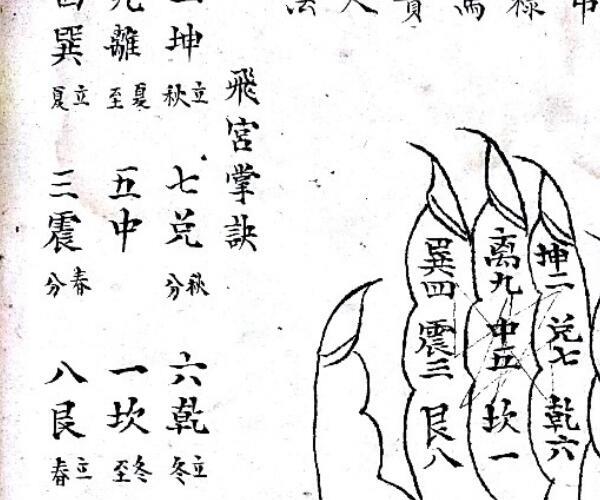 祿
飛宮掌訣
坤 立秋 七兌 秋分 六乾 立冬
離 夏至 五中 一坎 冬至
巽 立夏 三震 春分 八艮 立春
坤二 兌七 乾六
离九 中五 坎一
巽四 震三 艮八